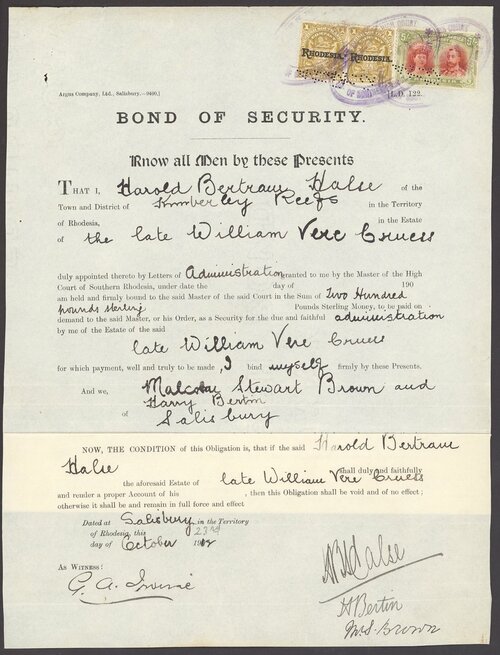 RHODESIA.
RHODESIA.
Argus Company, Ltd., Salisbury.—2460.]
[L.D. 122.
BOND OF SECURITY.
Know all Men by these Presents
THAT I, Harold Bertram Halse of the
Town and District of Kimberley Reefs in the Territory
of Rhodesia, in the Estate
of the late William Vere Cruess
duly appointed thereto by Letters of Administration granted to me by the Master of the High
Court of Southern Rhodesia, under date the day of 190
am held and firmly bound to the said Master of the said Court in the Sum of Two Hundred
pounds sterling Pounds Sterling Money, to be paid on
demand to the said Master, or his Order, as a Security for the due and faithful administration
by me of the Estate of the said
late William Vere Cruess
for which payment, well and truly to be made, I bind myself firmly by these Presents.
And we, Malcolm Stewart Brown and
Harry Bertin
of Salisbury
NOW, THE CONDITION of this Obligation is, that if the said Harold Bertram
Halse shall duly and faithfully
the aforesaid Estate of late William Vere Cruess
and render a proper Account of his , then this Obligation shall be void and of no effect;
otherwise it shall be and remain in full force and effect
Dated at Salisbury in the Territory
of Rhodesia, this 23rd
day of October 1912
As Witness:
HBHalse
H Bertin
M.S. Brown